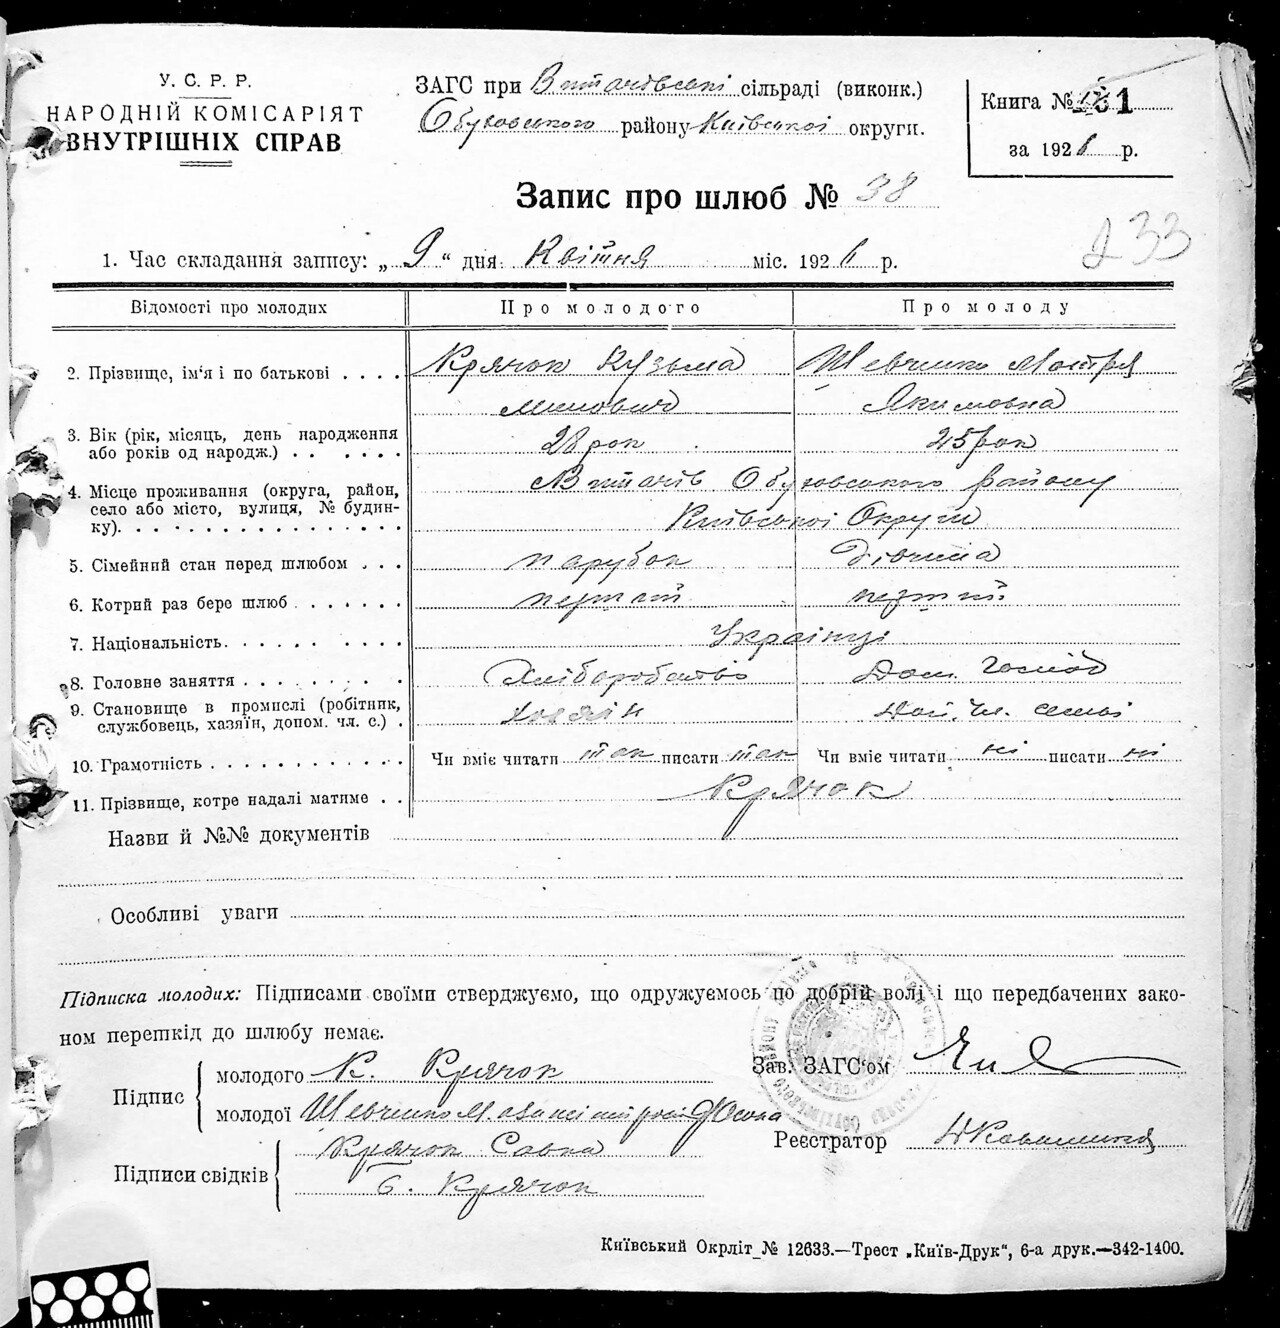 У. С. Р. Р.
НАРОДНІЙ КОМІСАРІЯТ
ВНУТРІШНІХ СПРАВ
ЗАГС при Витачівські сільраді (виконк.)
Обуховського району Київської округи.
Книга №
за 1926 р.
Запис про шлюб № 38
233
1. Час складання запису: „ 9 “ дня Квітня міс. 1926 р.
Відомості про молодих Про молодого Про молоду
2. Прізвище, ім'я і по батькові . . . . Крячок Кузьма Шевченко Мотря
Минович Якимовна
3. Вік (рік, місяць, день народження або років од народж.) . . . . . . 28 рок 25 рок
4. Місце проживання (округа, район, село або місто, вулиця, № будинку). Витачів Обуховського району
Київської Округи
5. Сімейний стан перед шлюбом . . . парубок дівчина
6. Котрий раз бере шлюб . . . . . . . перший перший
7. Національність. . . . . . . . . . . Українці
8. Головне заняття . . . . . . . . . Хліборобство Дом. Господ
9. Становище в промислі (робітник, службовець, хазяїн, допом. чл. с.) . хазяін чл. семьі
10. Грамотність . . . . . . . . . . . . Чи вміє читати так писати так Чи вміє читати ні писати ні
11. Прізвище, котре надалі матиме . . Крячок
Назви й №№ документів
Особливі уваги
Підписка молодих: Підписами своїми стверджуємо, що одружуємось по добрій волі і що передбачених зако-
ном перешкід до шлюбу немає.
Підпис
молодого К. Крячок
молодої Шевченко М.
Зав. ЗАГС'ом
Реєстратор
Підписи свідків
Крячок Савка
Крячок
Київський Окрліт № 12633.—Трест „Київ-Друк“, 6-а друк.—342-1400.